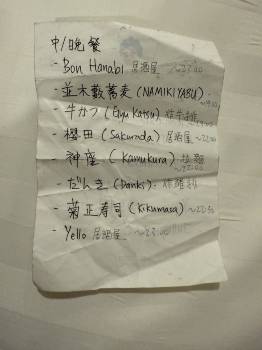 中/晚餐
- Bon Hanabi 居酒屋 ~22:00
- 並木藪蕎麦 (NAMIKIYABU)
- 牛かつ (Gyu Katsu) 炸牛排
- 櫻田 (Sakurada) 居酒屋 ~22:00
- 神座 (Kamukura) 拉麵
- だんき (Danki)
- 菊正寿司 (Kikumasa) ~22:30
- Yello 居酒屋